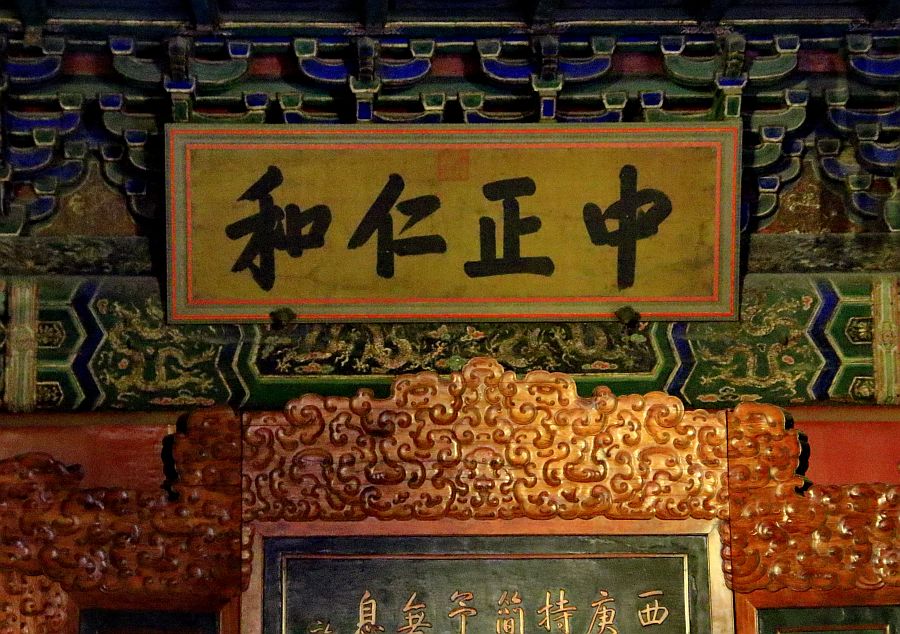 中正仁和
西
庚
持
簡
無
息